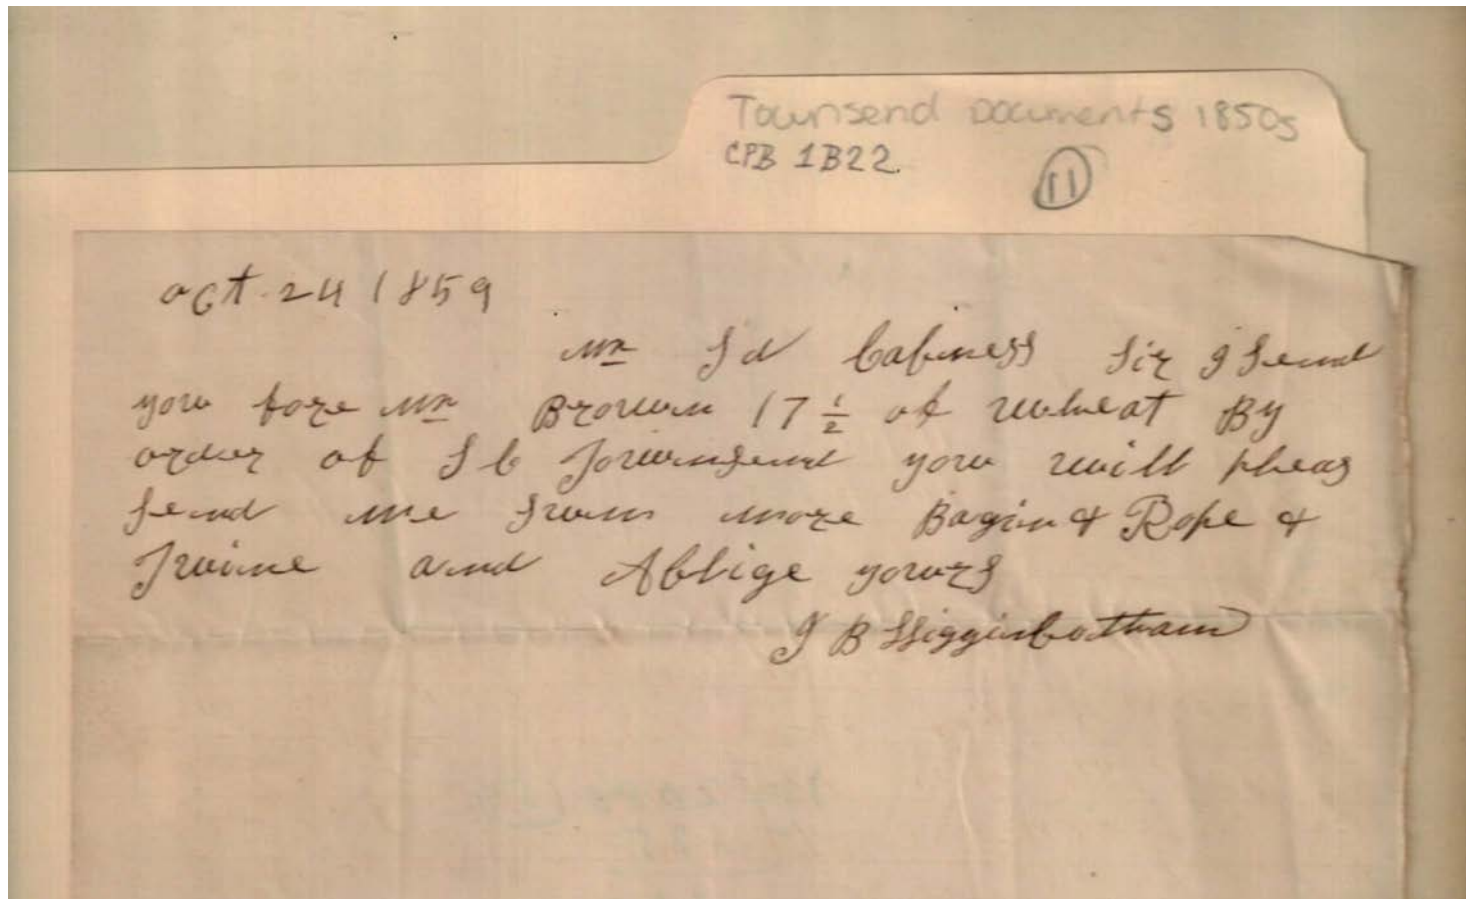 Townsend Documents 1850s
CPB 1B22.
11
oct. 24 1859
Mr S d Cabiness Sir I Send
you fore Mr Brown 17 1/2 of wheat By
order of S C Townsend you will pleas
Send me Sum more Bagin & Rope &
Twine and Ablige yours
J B Higginbotham